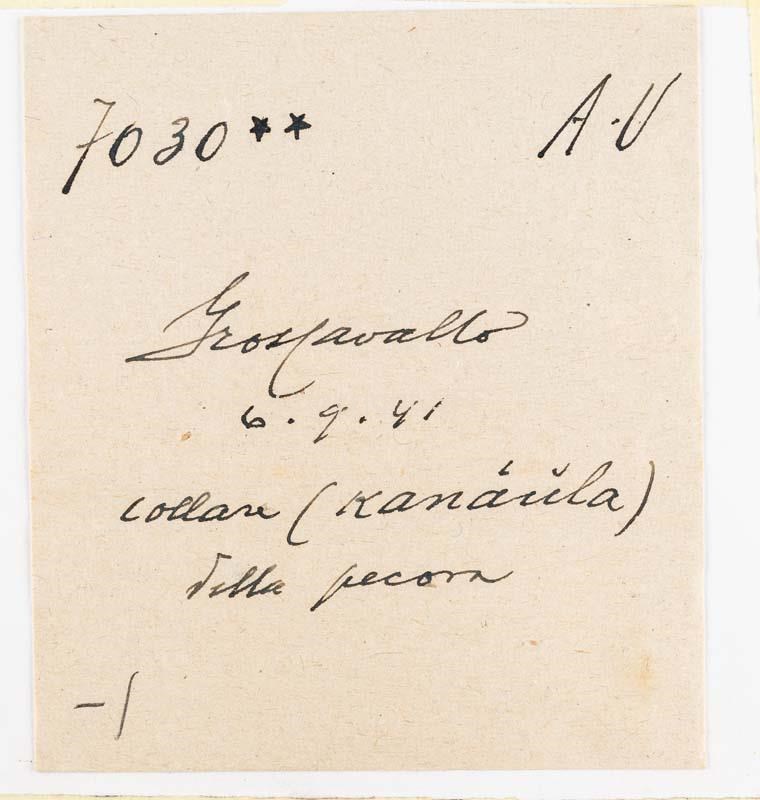 7030** A.V
Groscavallo
6.9.41
collare (Kanáŭla)
della pecora